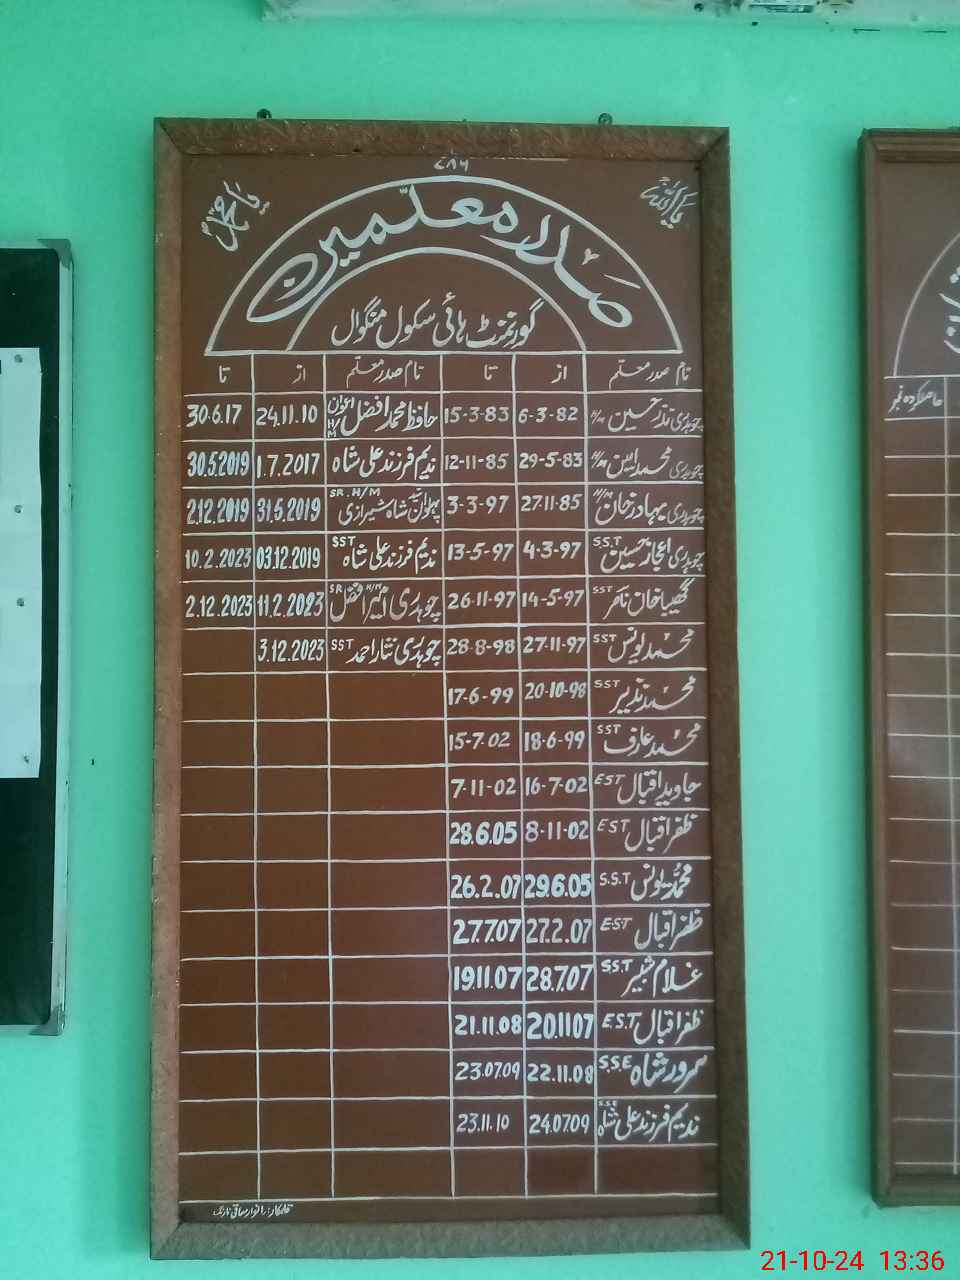 ۷۸۶
یا اللہ
یا محمد
صدر معلمین
گورنمنٹ ہائی سکول منگوال
نام صدر معلم از تا نام صدر معلم از تا
چوہدری نذر حسین H/M 6-3-82 15-3-83 حافظ محمد افضل اعوان H/M 24.11.10 30.6.17
چوہدری محمد امین H/M 29-5-83 12-11-85 ندیم فرزند علی شاہ 1.7.2017 30.5.2019
چوہدری بہادر خان H/M 27-11-85 3-3-97 پہلوان سید شاہ شیرازی SR. H/M 31.5.2019 2.12.2019
چوہدری اعجاز حسین S.S.T 4-3-97 13-5-97 ندیم فرزند علی شاہ SST 03.12.2019 10.2.2023
گھیبا خان ناصر SST 14-5-97 26-11-97 چوہدری افضل SR H/M 11.2.2023 2.12.2023
محمد یونس SST 27-11-97 28-8-98 چوہدری نثار احمد SST 3.12.2023
محمد نذیر SST 20-10-98 17-6-99
محمد عارف SST 18-6-99 15-7-02
جاوید اقبال EST 16-7-02 7-11-02
ظفر اقبال EST 8-11-02 28.6.05
محمد یونس S.S.T 29.6.05 26.2.07
ظفر اقبال E.S.T 27.2.07 27.7.07
غلام شبیر S.S.T 28.7.07 19.11.07
ظفر اقبال E.S.T 20.11 07 21.11.08
سرور شاہ S.S.E 22.11.08 23.07.09
ندیم فرزند علی شاہ S.S.E 24.07.09 23.11.10
حاصلکردہ نمبر
21-10-24 13:36